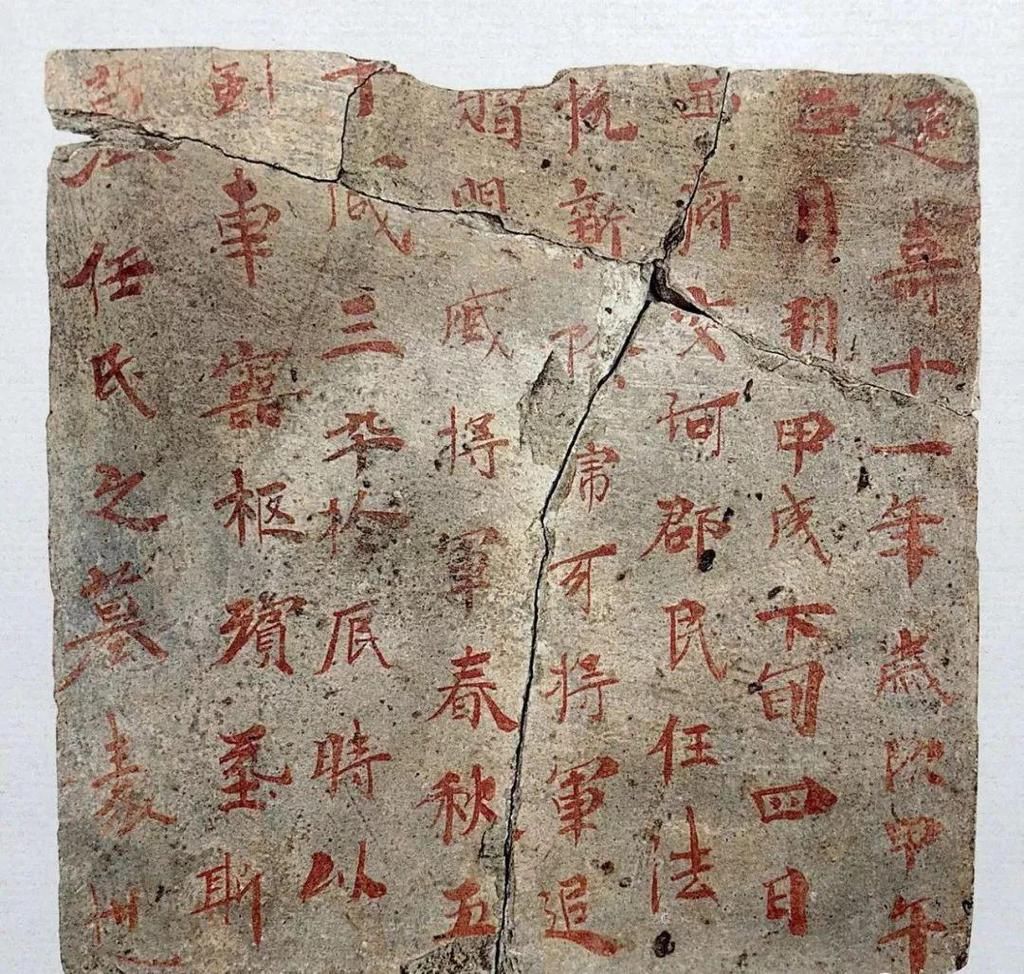 延壽十一年歲次甲午
正月朔甲戌下旬四日
西府交河郡民任法
悅新除虎牙將軍追
贈明威將軍春秋五
十咸三卒於辰時以
到車靈柩殯葬斯
墓任氏之墓表